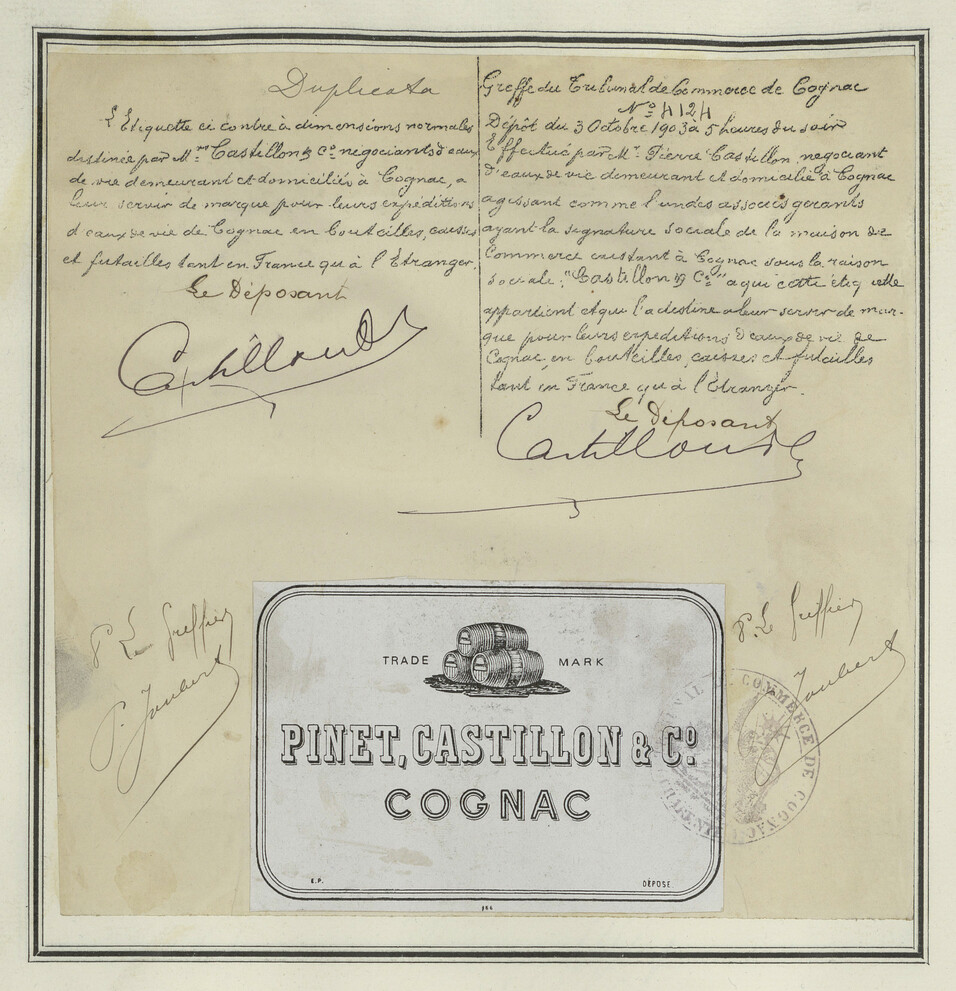 Duplicata
L'Étiquette ci contre à dimensions normales
destinée par M.rs Castillon & C.o négociants d'eaux
de vie demeurant et domiciliés à Cognac, a
leur servir de marque pour leurs expéditions
d'eaux de vie de Cognac en bouteilles, caisses
et futailles tant en France qu'à l'Étranger.
Le Déposant
Castillon
Greffe du Tribunal de Commerce de Cognac
N.o 4124
Dépôt du 3 Octobre 1903 à 5 heures du soir
Effectué par M.r Pierre Castillon, négociant
d'eaux de vie demeurant et domicilié à Cognac
agissant comme l'un des associés gérants
ayant la signature sociale de la maison de
Commerce existant à Cognac sous la raison
sociale: "Castillon & C.o" a qui cette étiquette
appartient et qui l'a destine a leur servir de mar-
que pour leurs expéditions d'eaux de vie de
Cognac en bouteilles, caisses et futailles
tant en France qu'à l'Étranger.
Le Déposant
Castillon
P. Le Greffier
P. Joubert
P. Le Greffier
Joubert
TRADE MARK
PINET, CASTILLON & Co.
COGNAC
E.P.
DÉPOSÉ
COMMERCE DE COGNAC